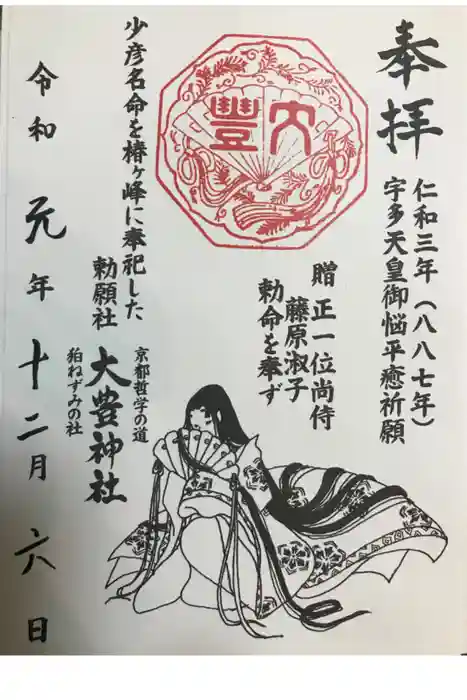 奉拝
仁和三年（八八七年）
宇多天皇御悩平癒祈願
贈 正一位尚侍
藤原淑子
勅命を奉ず
大豊
少彦名命を椿ヶ峰に奉祀した
勅願社
京都哲学の道
大豊神社
狛ねずみの社
令和元年十二月六日